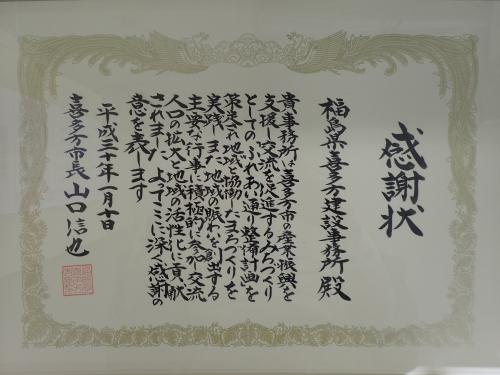 感謝状
福島県喜多方建設事務所殿
貴事務所は喜多方市の産業振興を
支援し交流を促進するみちづくり
としてのふれあい通り整備計画を
策定され地域と協働したまちづくりを
実践しまた地域の賑わいを創出する
主要な行事に積極的に参加し交流
人口の拡大と地域の活性化に貢献
されましたよってここに深く感謝の
意を表します
平成三十年一月十日
喜多方市長山口信也